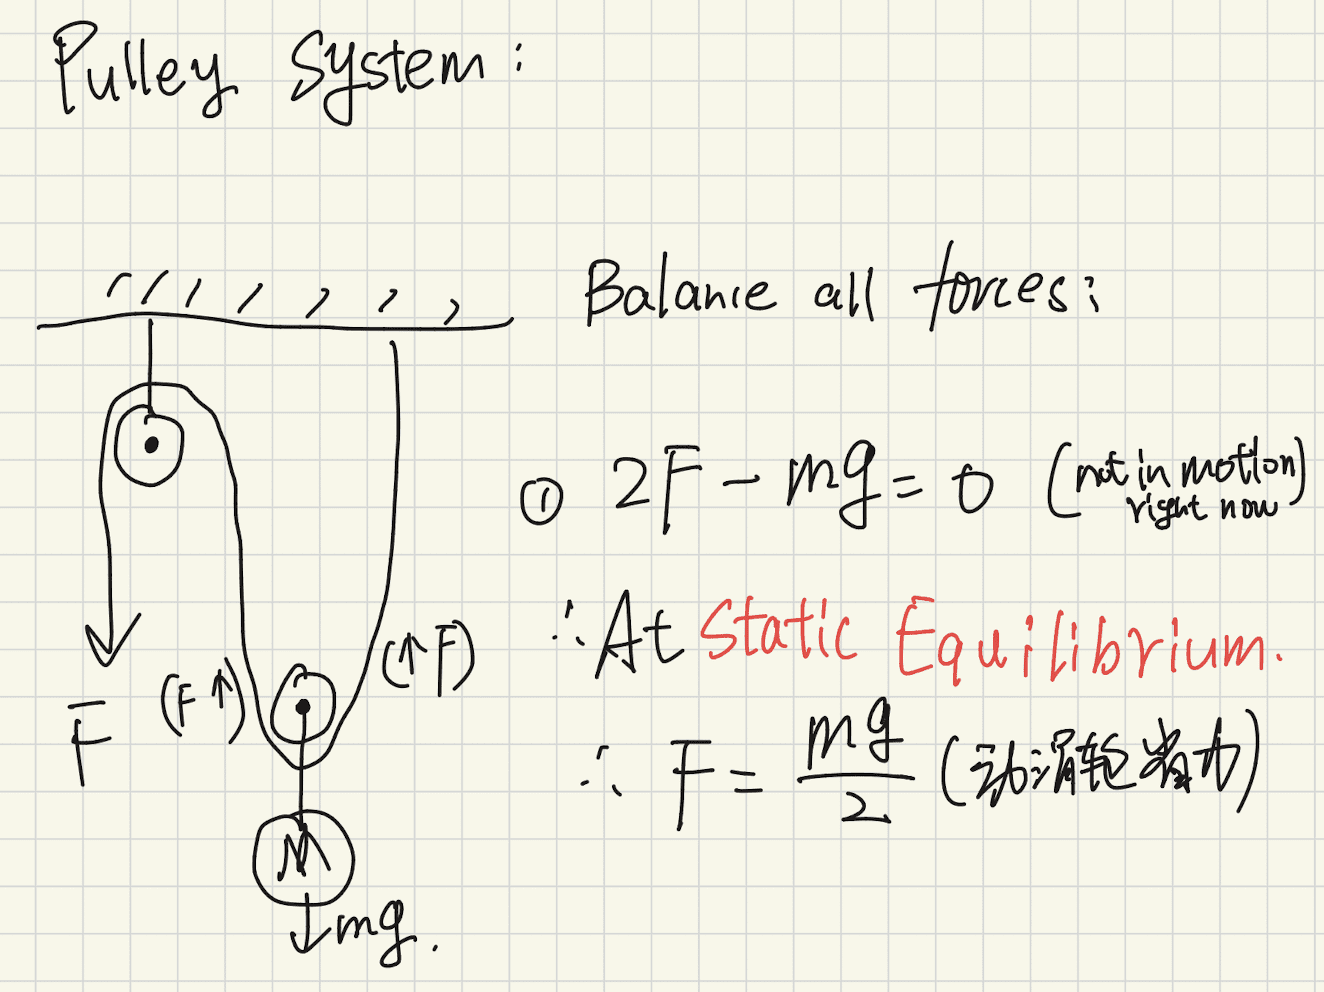 Pulley System:
Balance all forces:
① 2F - mg = 0 (not in motion
right now)
∴ At Static Equilibrium.
∴ F = mg/2 (动滑轮省力)
F
(F↑)
(↑F)
M
↓mg.